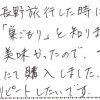 長野旅行した時に
「巣ごもり」と知りま
美味かったので、
にて購入しました。
リピートしたいです。